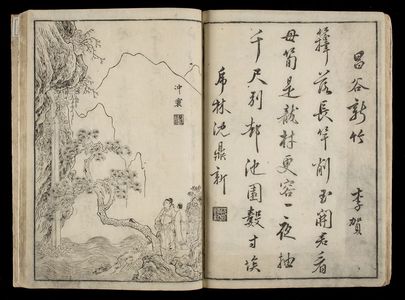 昌谷新竹 李賀
籜落長竿削玉開君看
母筍是龍材更容一夜抽
千尺別却池園數寸埃
虎林沈鼎新
冲寰